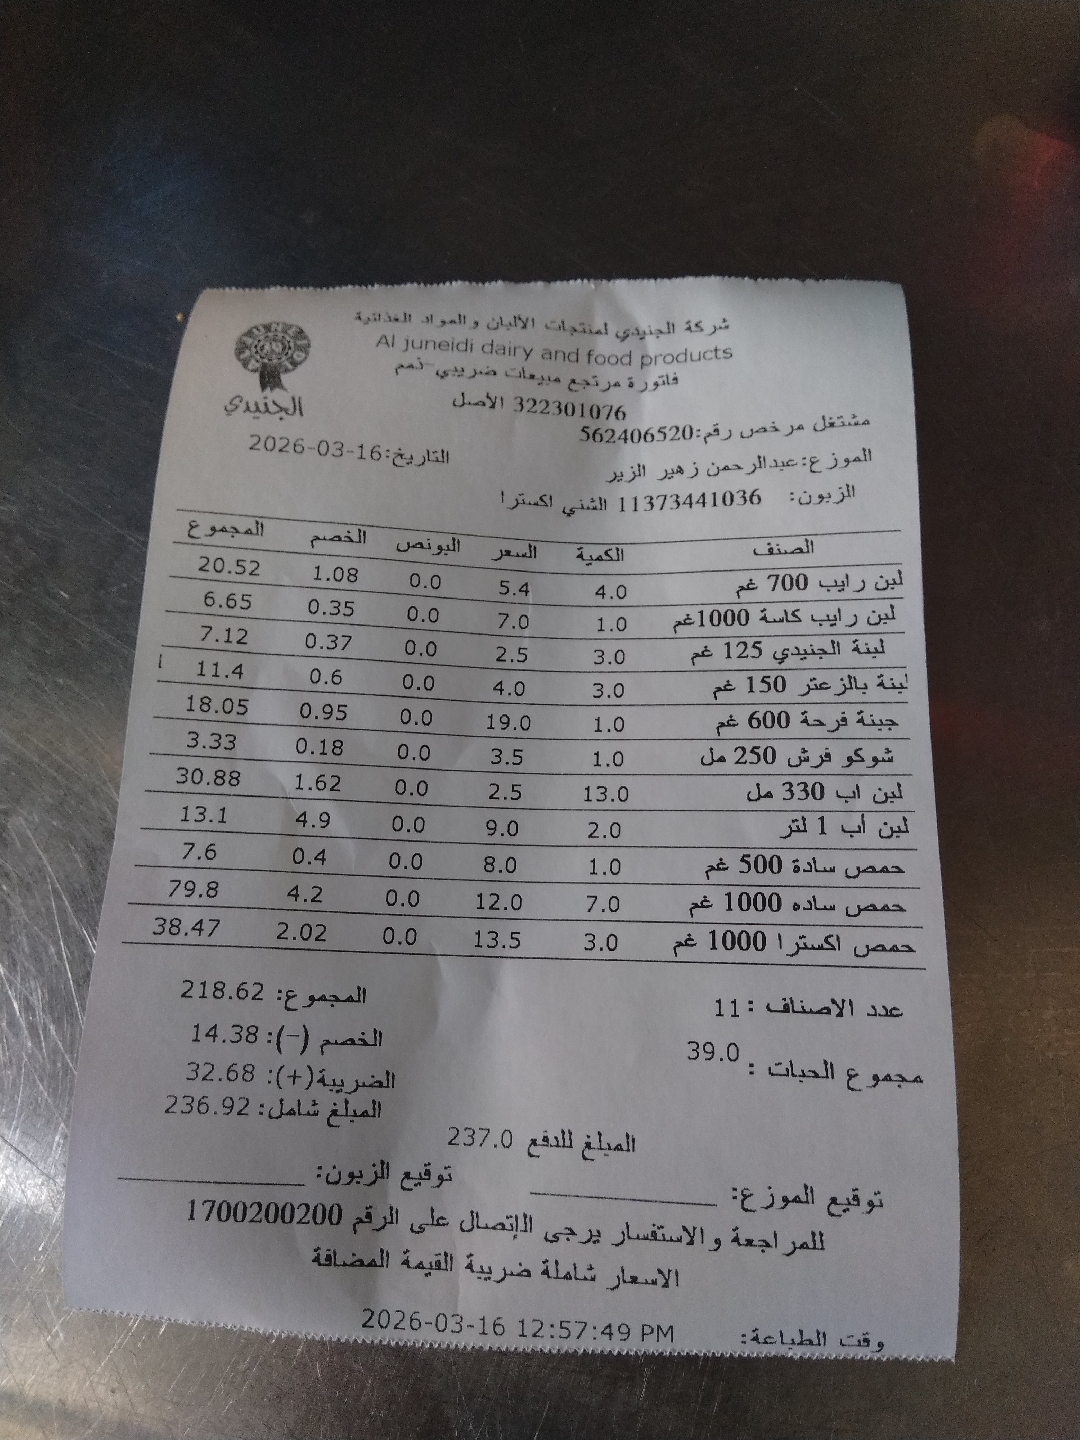 شركة الجنيدي لمنتجات الألبان والمواد الغذائية
Al juneidi dairy and food products
فاتورة مرتجع مبيعات ضريبي-ذمم
322301076 الأصل
الجنيدي
مشتغل مرخص رقم:562406520
التاريخ:2026-03-16
الموزع:عبدالرحمن زهير الزير
الزبون: 11373441036 الشني اكسترا
الصنف الكمية السعر البونص الخصم المجموع
لبن رايب 700 غم 4.0 5.4 0.0 1.08 20.52
لبن رايب كاسة 1000غم 1.0 7.0 0.0 0.35 6.65
لبنة الجنيدي 125 غم 3.0 2.5 0.0 0.37 7.12
لبنة بالزعتر 150 غم 3.0 4.0 0.0 0.6 11.4
جبنة فرحة 600 غم 1.0 19.0 0.0 0.95 18.05
شوكو فرش 250 مل 1.0 3.5 0.0 0.18 3.33
لبن اب 330 مل 13.0 2.5 0.0 1.62 30.88
لبن أب 1 لتر 2.0 9.0 0.0 4.9 13.1
حمص سادة 500 غم 1.0 8.0 0.0 0.4 7.6
حمص ساده 1000 غم 7.0 12.0 0.0 4.2 79.8
حمص اكسترا 1000 غم 3.0 13.5 0.0 2.02 38.47
عدد الاصناف :11
المجموع: 218.62
الخصم (-): 14.38
مجموع الحبات : 39.0
الضريبة(+): 32.68
المبلغ شامل: 236.92
المبلغ للدفع 237.0
توقيع الموزع: توقيع الزبون:
للمراجعة والاستفسار يرجى الإتصال على الرقم 1700200200
الاسعار شاملة ضريبة القيمة المضافة
وقت الطباعة: 2026-03-16 12:57:49 PM